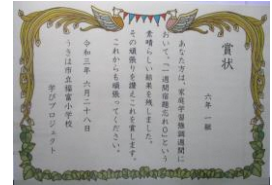 賞状
六年 一組
あなた方は、家庭学習強調週間に
おいて、「一週間宿題忘れ0」という
素晴らしい結果を残しました。
その頑張りを讃えこれを賞します。
これからも頑張ってください。
令和三年 六月二十八日
うきは市立福富小学校
学びプロジェクト